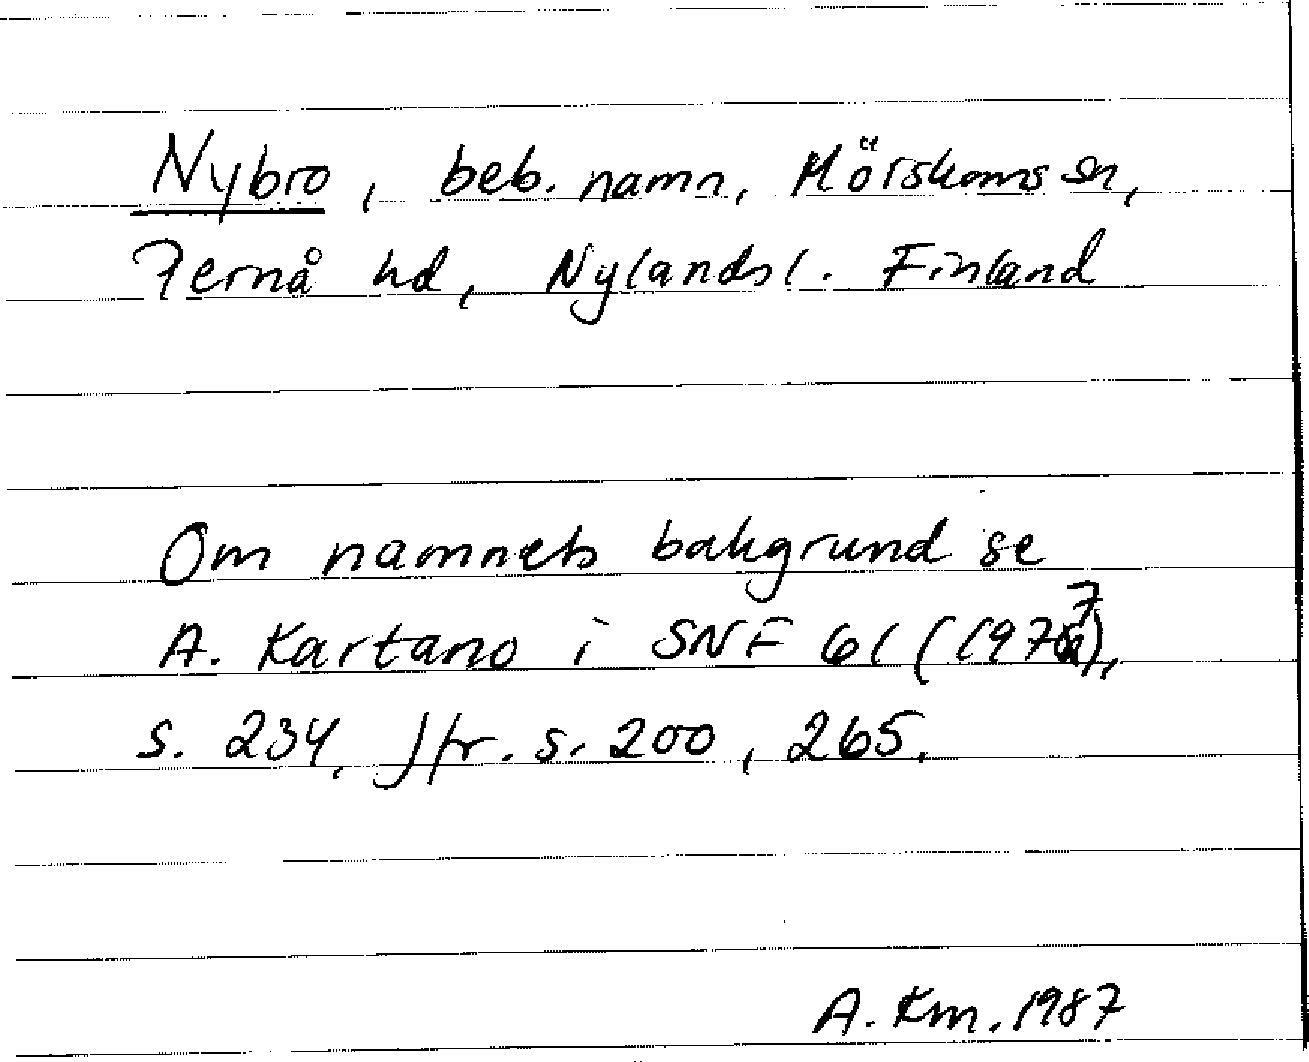 Nybro, beb. namn, Mörskoms sn,
Pernå hd, Nylands l. Finland
Om namnets bakgrund se
A. Kartano i SNF 61 (1977),
s. 234. Jfr. s. 200, 265.
A. Km. 1987